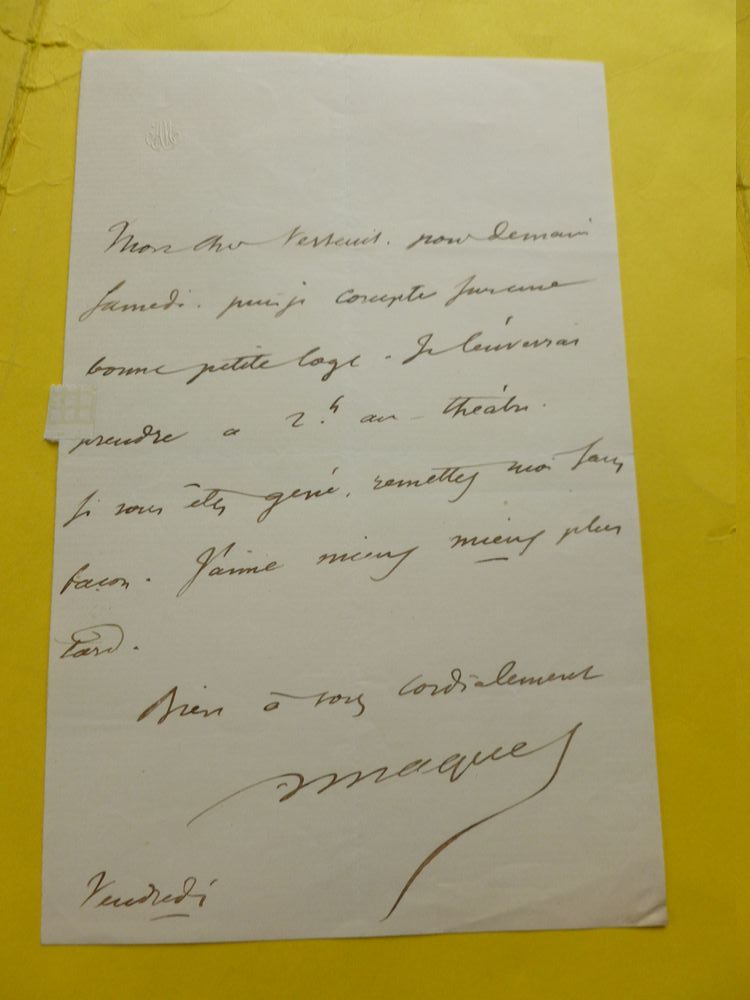 Mon cher Verteuil. pour demain
Samedi. puis je compter sur une
bonne petite loge. Je l'enverrai
prendre a 2.h au théâtre.
Si vous êtes gêné, remettez moi sans
façon. J'aime mieux mieux plus
tard.
Bien à vous cordialement
AMaquet
Vendredi